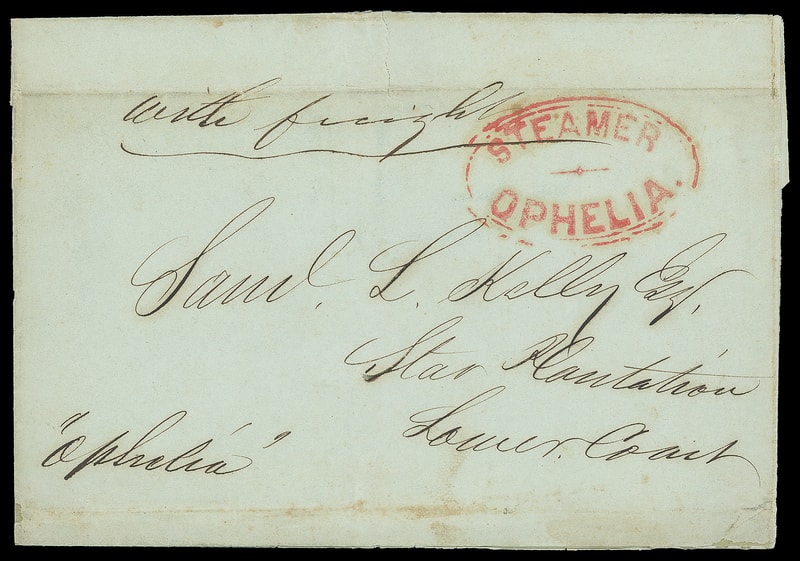 with freight
STEAMER
OPHELIA.
Saml. L. Kelly Esq.
Star Plantation
Lower. Coast
"Ophelia"